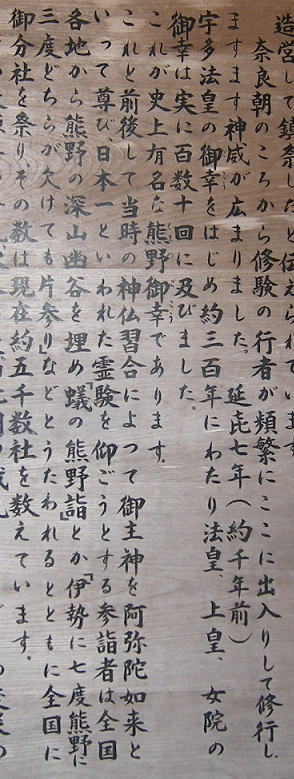 造営して鎮祭したと伝えられています
奈良朝のころから修験の行者が頻繁にここに出入りして修行し
ますます神威が広まりました。延㐂七年(約千年前)
宇多法皇の御幸をはじめ約三百年にわたり法皇、上皇、女院の
御幸は実に百数十回に及びました。
これが史上有名な熊野御幸であります。
これと前後して当時の神仏習合によって御主神を阿弥陀如来と
いって尊び日本一といわれた霊験を仰ごうとする参詣者は全国
各地から熊野の深山幽谷を埋め「蟻の熊野詣」とか「伊勢に七度熊野に
三度どちらが欠けても片参り」などとうたわれるとともに全国に
御分社を祭り、その数は現在約五千数社を数えています。